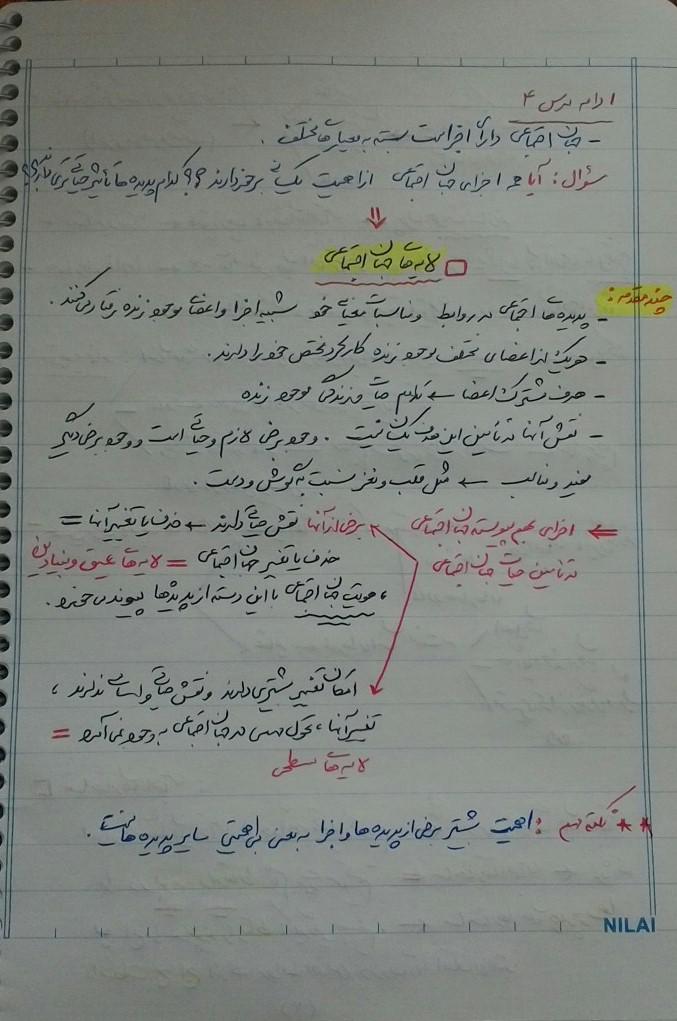 ادامه درس ۴
- جهان اجتماعی دارای اجزاست بسته به معیارهای مختلف .
سؤال : آیا همه اجزای جهان اجتماعی از اهمیت یکسانی برخوردارند ؟؟ کدام پدیده ها تأثیر حیاتی تری دارند ؟؟
⇓
□ لایه های جهان اجتماعی
چند مقدمه :
- پدیده های اجتماعی در روابط و مناسبات میان خود شبیه اجزا و اعضای موجود زنده رفتار می کنند .
- هر یک از اعضای مختلف موجود زنده کارکرد مختص خود را دارند .
- هدف مشترک اعضا ← تداوم حیات و زندگی موجود زنده
- نقش آنها در تأمین این هدف یکسان نیست . وجود برخی لازم و حیاتی است و وجود برخی دیگر
مفید و سالم ← مثل قلب و مغز نسبت به گوش و دست .
⇐ اجزای بهم پیوسته جهان اجتماعی
در تأمین حیات جهان اجتماعی
برخی از آنها نقش حیاتی دارند ← حذف یا تغییر آنها =
حذف یا تغییر جهان اجتماعی = لایه های عمیق و بنیادین
، هویت جهان اجتماعی با این دسته از پدیده ها پیوند می خورد .
امکان تغییر بیشتری دارند و نقش حیاتی و اساسی ندارند ،
تغییر آنها ، تحول مهمی در جهان اجتماعی به وجود نمی آورد =
لایه های سطحی
** نکته مهم : اهمیت بیشتر برخی از پدیده ها و اجزا به معنی بی اهمیتی سایر پدیده ها نیست .
NILAI